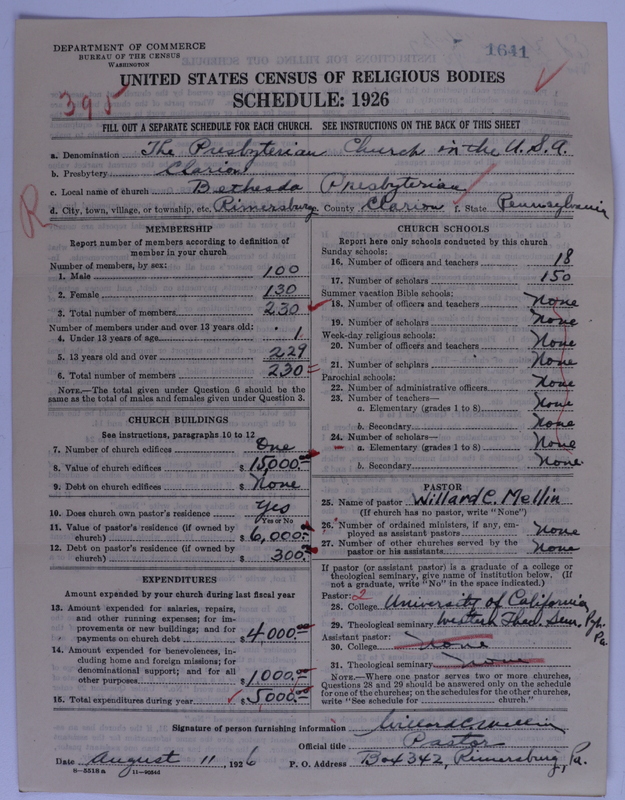 DEPARTMENT OF COMMERCE
BUREAU OF THE CENSUS
WASHINGTON
1641
UNITED STATES CENSUS OF RELIGIOUS BODIES
SCHEDULE: 1926
395
FILL OUT A SEPARATE SCHEDULE FOR EACH CHURCH. SEE INSTRUCTIONS ON THE BACK OF THIS SHEET
a. Denomination The Presbyterian Church in the U.S.A.
b. Presbytery Clarion
c. Local name of church Bethesda Presbyterian
R
d. City, town, village, or township, etc. Rimersburg e. County Clarion f. State Pennsylvania
MEMBERSHIP
Report number of members according to definition of
member in your church
Number of members, by sex:
1. Male 100
2. Female 130
3. Total number of members 230
Number of members under and over 13 years old:
4. Under 13 years of age 1
5. 13 years old and over 229
6. Total number of members 230
NOTE.—The total given under Question 6 should be the
same as the total of males and females given under Question 3.
CHURCH BUILDINGS
See instructions, paragraphs 10 to 12
7. Number of church edifices One
8. Value of church edifices $ 15,000.00
9. Debt on church edifices $ None
10. Does church own pastor's residence? Yes
Yes or No
11. Value of pastor's residence (if owned by
church) $ 6,000.00
12. Debt on pastor's residence (if owned by
church) $ 300.00
EXPENDITURES
Amount expended by your church during last fiscal year
13. Amount expended for salaries, repairs,
and other running expenses; for im-
provements or new buildings; and for
payments on church debt $ 4,000.00
14. Amount expended for benevolences, in-
cluding home and foreign missions; for
denominational support; and for all
other purposes $ 1,000.00
15. Total expenditures during year $ 5000.00
CHURCH SCHOOLS
Report here only schools conducted by this church
Sunday schools:
16. Number of officers and teachers 18
17. Number of scholars 150
Summer vacation Bible schools:
18. Number of officers and teachers None
19. Number of scholars None
Week-day religious schools:
20. Number of officers and teachers None
21. Number of scholars None
Parochial schools:
22. Number of administrative officers None
23. Number of teachers—
a. Elementary (grades 1 to 8) None
b. Secondary None
24. Number of scholars—
a. Elementary (grades 1 to 8) None
b. Secondary None.
PASTOR
25. Name of pastor Willard C. Mellin
(If church has no pastor, write "None")
26. Number of ordained ministers, if any, em-
ployed as assistant pastors None
27. Number of other churches served by the
pastor or his assistants None
If pastor (or assistant pastor) is a graduate of a college or
theological seminary, give name of institution below. (If
not a graduate, write "No" in the space indicated.)
Pastor: 2
28. College University of California
29. Theological seminary Western Theo. Sem. Pgh. Pa.
Assistant pastor:
30. College None
31. Theological seminary None
NOTE.—Where one pastor serves two or more churches,
Questions 28 and 29 should be answered only on the schedule
for one of the churches; on the schedules for the other churches,
write "See schedule for church."
Signature of person furnishing information Willard C. Mellin
Official title Pastor
Date August 11, 1926 P. O. Address Box 342, Rimersburg, Pa.
8—5518a 11—9054d